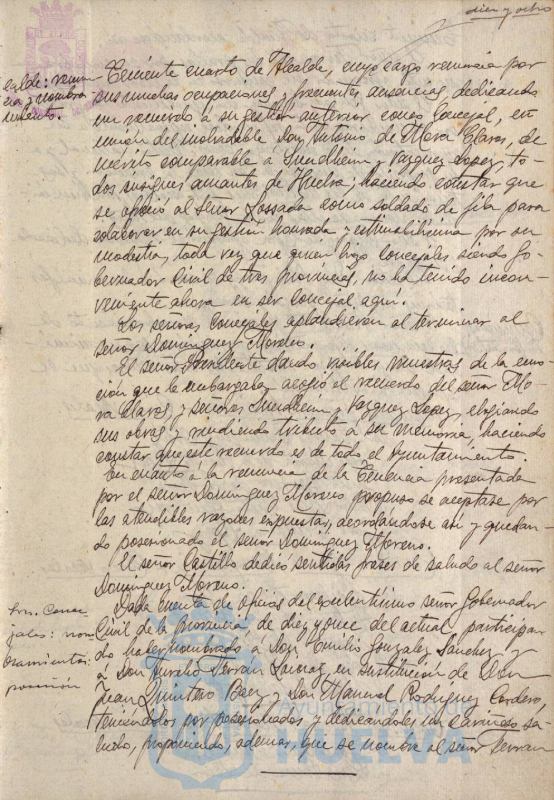 diez y ocho
calde: renun
cia y nombra
miento.
Teniente cuarto de Alcalde, cuyo cargo renuncia por
sus muchas ocupaciones y frecuentes ausencias, dedicando
un recuerdo a su gestión anterior como Concejal, en
unión del inolvidable Don Antonio de Mora Claros, de
mérito comparable a Sundheim y Vazquez Lopez, to-
dos insignes amantes de Huelva, haciendo constar que
se ofreció al Señor Lossada como soldado de fila para
colaborar en su gestión honrada y estimabilisima por su
modestia, toda vez que quien hizo Concejales siendo Go-
bernador Civil de tres provincias, no ha tenido incon-
veniente ahora en ser Concejal aquí.
Los señores Concejales aplaudieron al terminar al
señor Dominguez Moreno.
El señor Presidente dando visibles muestras de la emo-
ción que le embargaba, acojió el recuerdo del señor Mo-
ra Claros, y señores Sundheim y Vazquez Lopez, elogiando
sus obras y rindiendo tributo á su memoria, haciendo
constar que este recuerdo es de todo el Ayuntamiento.
En cuanto á la renuncia de la Tenencia presentada
por el señor Dominguez Moreno propuso se aceptase por
las atendibles razones expuestas, acordándose así y quedan-
do posesionado el señor Dominguez Moreno.
El señor Castillo dedicó sentidas frases de saludo al señor
Dominguez Moreno.
Sres. Conce
jales: nom
bramientos:
posesión
Dada cuenta de oficios del Excelentísimo señor Gobernador
Civil de la provincia de diez y once del actual participan-
do haber nombrado á Don Emilio Gonzalez Sanchez y
á Don Aurelio Terran en sustitución de Don
Juan Quintero Baez y Don Manuel Rodriguez Cordero,
teniendolos por posesionados y dedicandoles un cariñoso sa-
ludo, proponiendo, ademas, que se nombre al señor Terran
Ayuntamiento de
HUELVA